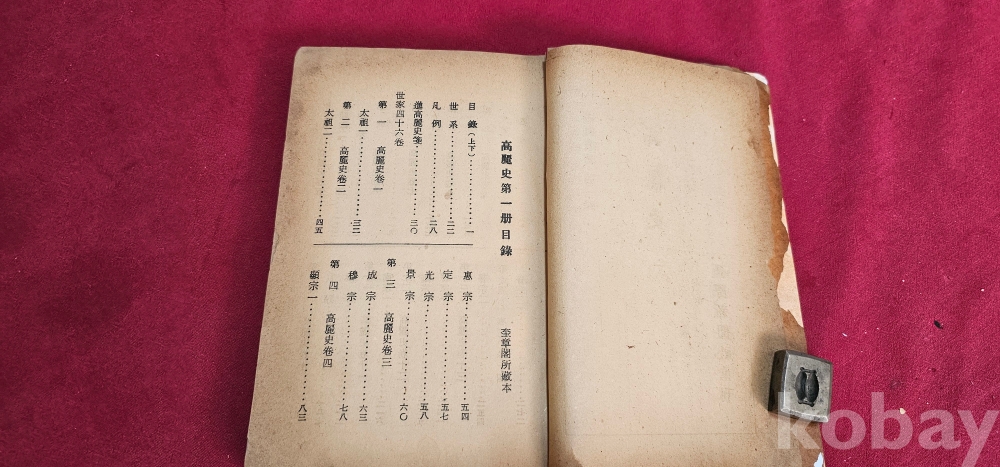 高麗史第一册目錄 奎章閣所藏本
目錄(上下)............一
世系............二二
凡例............二八
進高麗史箋............三〇
世家四十六卷
第一 高麗史卷一
太祖一............三二
第二 高麗史卷二
太祖二............四五
惠宗............五四
定宗............五七
光宗............五八
景宗............六〇
第三 高麗史卷三
成宗............六三
穆宗............七八
第四 高麗史卷四
顯宗一............八三
kobay